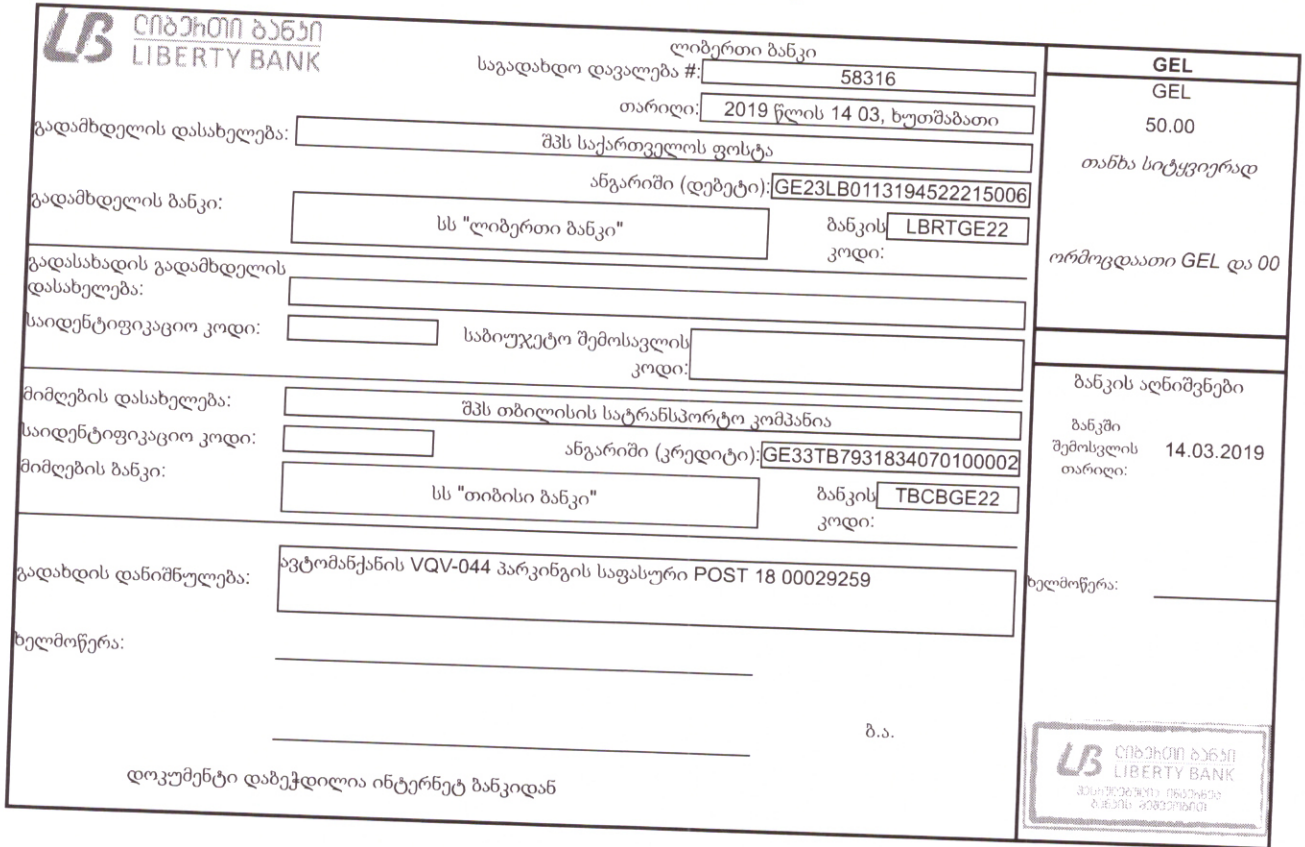 ლიბერთი ბანკი
LIBERTY BANK
ლიბერთი ბანკი
საგადახდო დავალება #: 58316
თარიღი: 2019 წლის 14 03, ხუთშაბათი
გადამხდელის დასახელება: შპს საქართველოს ფოსტა
ანგარიში (დებეტი): GE23LB0113194522215006
გადამხდელის ბანკი: სს "ლიბერთი ბანკი" ბანკის კოდი: LBRTGE22
გადასახადის გადამხდელის
დასახელება:
საიდენტიფიკაციო კოდი: საბიუჯეტო შემოსავლის
კოდი:
მიმღების დასახელება: შპს თბილისის სატრანსპორტო კომპანია
საიდენტიფიკაციო კოდი: ანგარიში (კრედიტი): GE33TB7931834070100002
მიმღების ბანკი: სს "თიბისი ბანკი" ბანკის კოდი: TBCBGE22
გადახდის დანიშნულება: ავტომანქანის VQV-044 პარკინგის საფასური POST 18 00029259
ხელმოწერა:
ბ.ა.
დოკუმენტი დაბეჭდილია ინტერნეტ ბანკიდან
GEL
GEL
50.00
თანხა სიტყვიერად
ორმოცდაათი GEL და 00
ბანკის აღნიშვნები
ბანკში
შემოსვლის 14.03.2019
თარიღი:
ხელმოწერა:
ლიბერთი ბანკი
LIBERTY BANK
შესრულებულია ინტერნეტ
ბანკის მეშვეობით